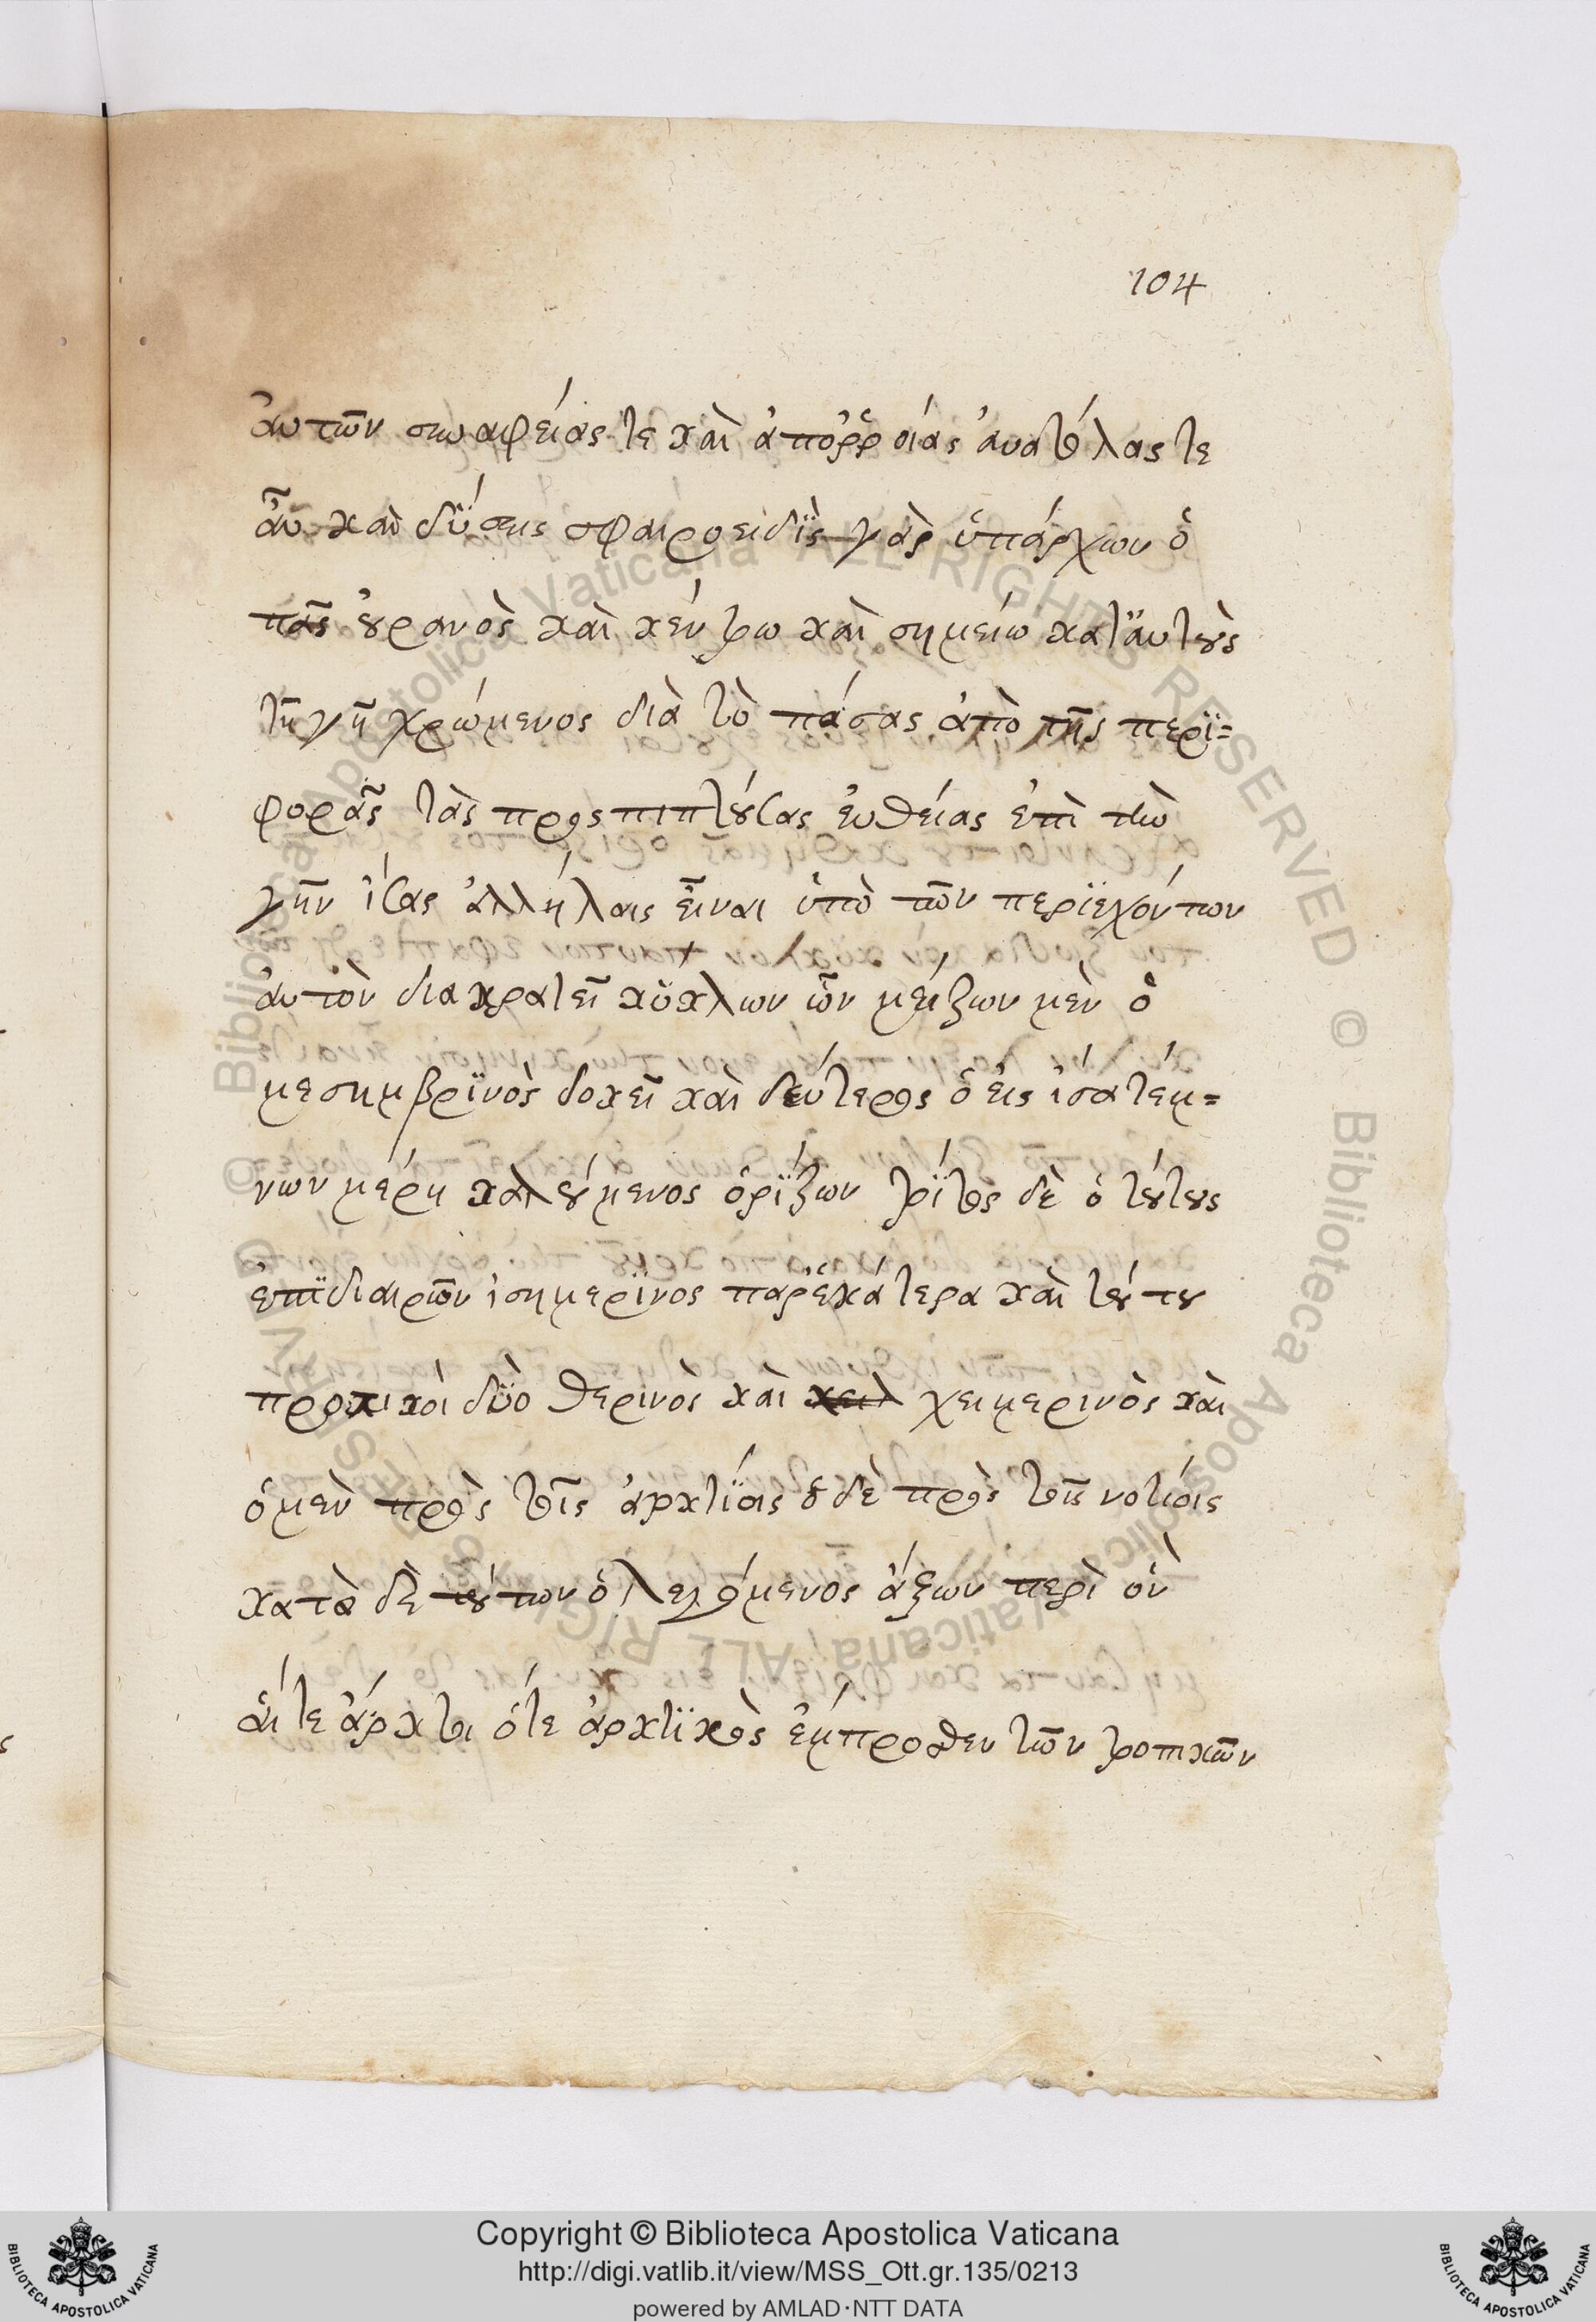 104
ἀυτῶν συναφείας τε καὶ ἀπορροίας ἀνατόλας τε
ἆυ καὶ δΰσης σφαιροειδῒς γὰρ ὑπάρχων ὁ
πᾶς οὐρανὸς καὶ κέντρω καὶ σημείω κατ' ἀυτοὺς
τῆ γῆ χρώμενος διὰ τὸ πάσας ἀπὸ τῆς περϊ=
φορᾶς τὰς προςπιπτούσας ἐυθείας ἐπὶ τὴν
γῆν ἴσας ἀλλήλαις εἶναι ὑπὸ τῶν περϊεχόντων
ἀυτὸν διακρατεῖ κύκλων ὧν μείζων μὲν ὁ
μεσημβρϊνὸς δοκεῖ καὶ δεύτερος ὁ εἰς ἰσα τέμ=
νων μέρη καλούμενος ὁρΐζων τρΐτος δὲ ὁ τούτους
ἐπϊδιαιρῶν ἰσημερϊνος παρ' ἑκάτερα καὶ τούτου
προπικὸι δΰο θερινὸς καὶ χειλ χειμερινὸς καὶ
ὁ μὲν πρὸς τοῖς ἀρκτΐοις ὁ δὲ πρὸς τοῖς νοτίοις
κατὰ δὲ τούτων ὁ λεγόμενος ἄξων περὶ ὁν
ἅι τε ἄρκτοι ὅτε ἀρκτϊκὸς ἔμπροσθεν τῶν τροπικῶν
Copyright © Biblioteca Apostolica Vaticana
http://digi.vatlib.it/view/MSS_Ott.gr.135/0213
powered by AMLAD·NTT DATA